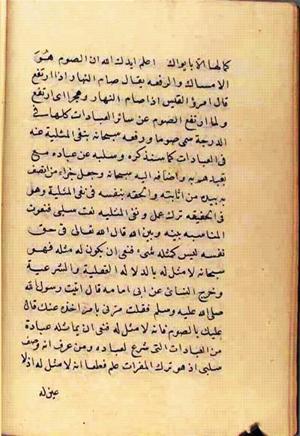 كمالها الا بابواك اعلم ايدك الله ان الصوم هو
الامساك والرفعه يقال صام النهار اذا ارتفع
قال امرؤ القيس اذا صام النهار وهجرا اى ارتفع
ولما ارتفع الصوم عن سائر العبادات كلها فى
الدرجة سمى صوما ورفعه سبحانه بنفى المثلية عنه
فى العبادات كما سنذكره وسلبه عن عباده مع
تعبدهم به واضافه اليه سبحانه وجعل جزاء من اتصف
به بيده من انانيته والحقه بنفسه فى نفى المثلية وهو
فى الحقيقه ترك عمل ونفى المثليه نعت سلبى فتقوت
المناسبه بينه وبين الله قال الله تعالى فى حق
نفسه ليس كمثله شىء فنفى ان يكون له مثله فهو
سبحانه لا مثل له بالدلالة العقلية والشرعية
وخرج النسائى عن ابى امامه قال اتيت رسول الله
صلى الله عليه وسلم فقلت مرنى بامر اخذه عنك قال
عليك بالصوم فانه لا مثل له فنفى ان يماثله عبادة
من العبادات التى شرع لعباده ومن عرف انه وصف
سلبى اذ هو ترك المفطرات علم قطعا انه لا مثل له اذ لا
عين له